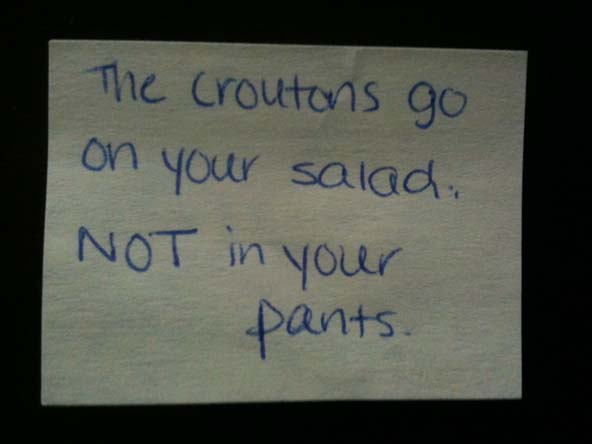 The croutons go
on your salad.
NOT in your
pants.